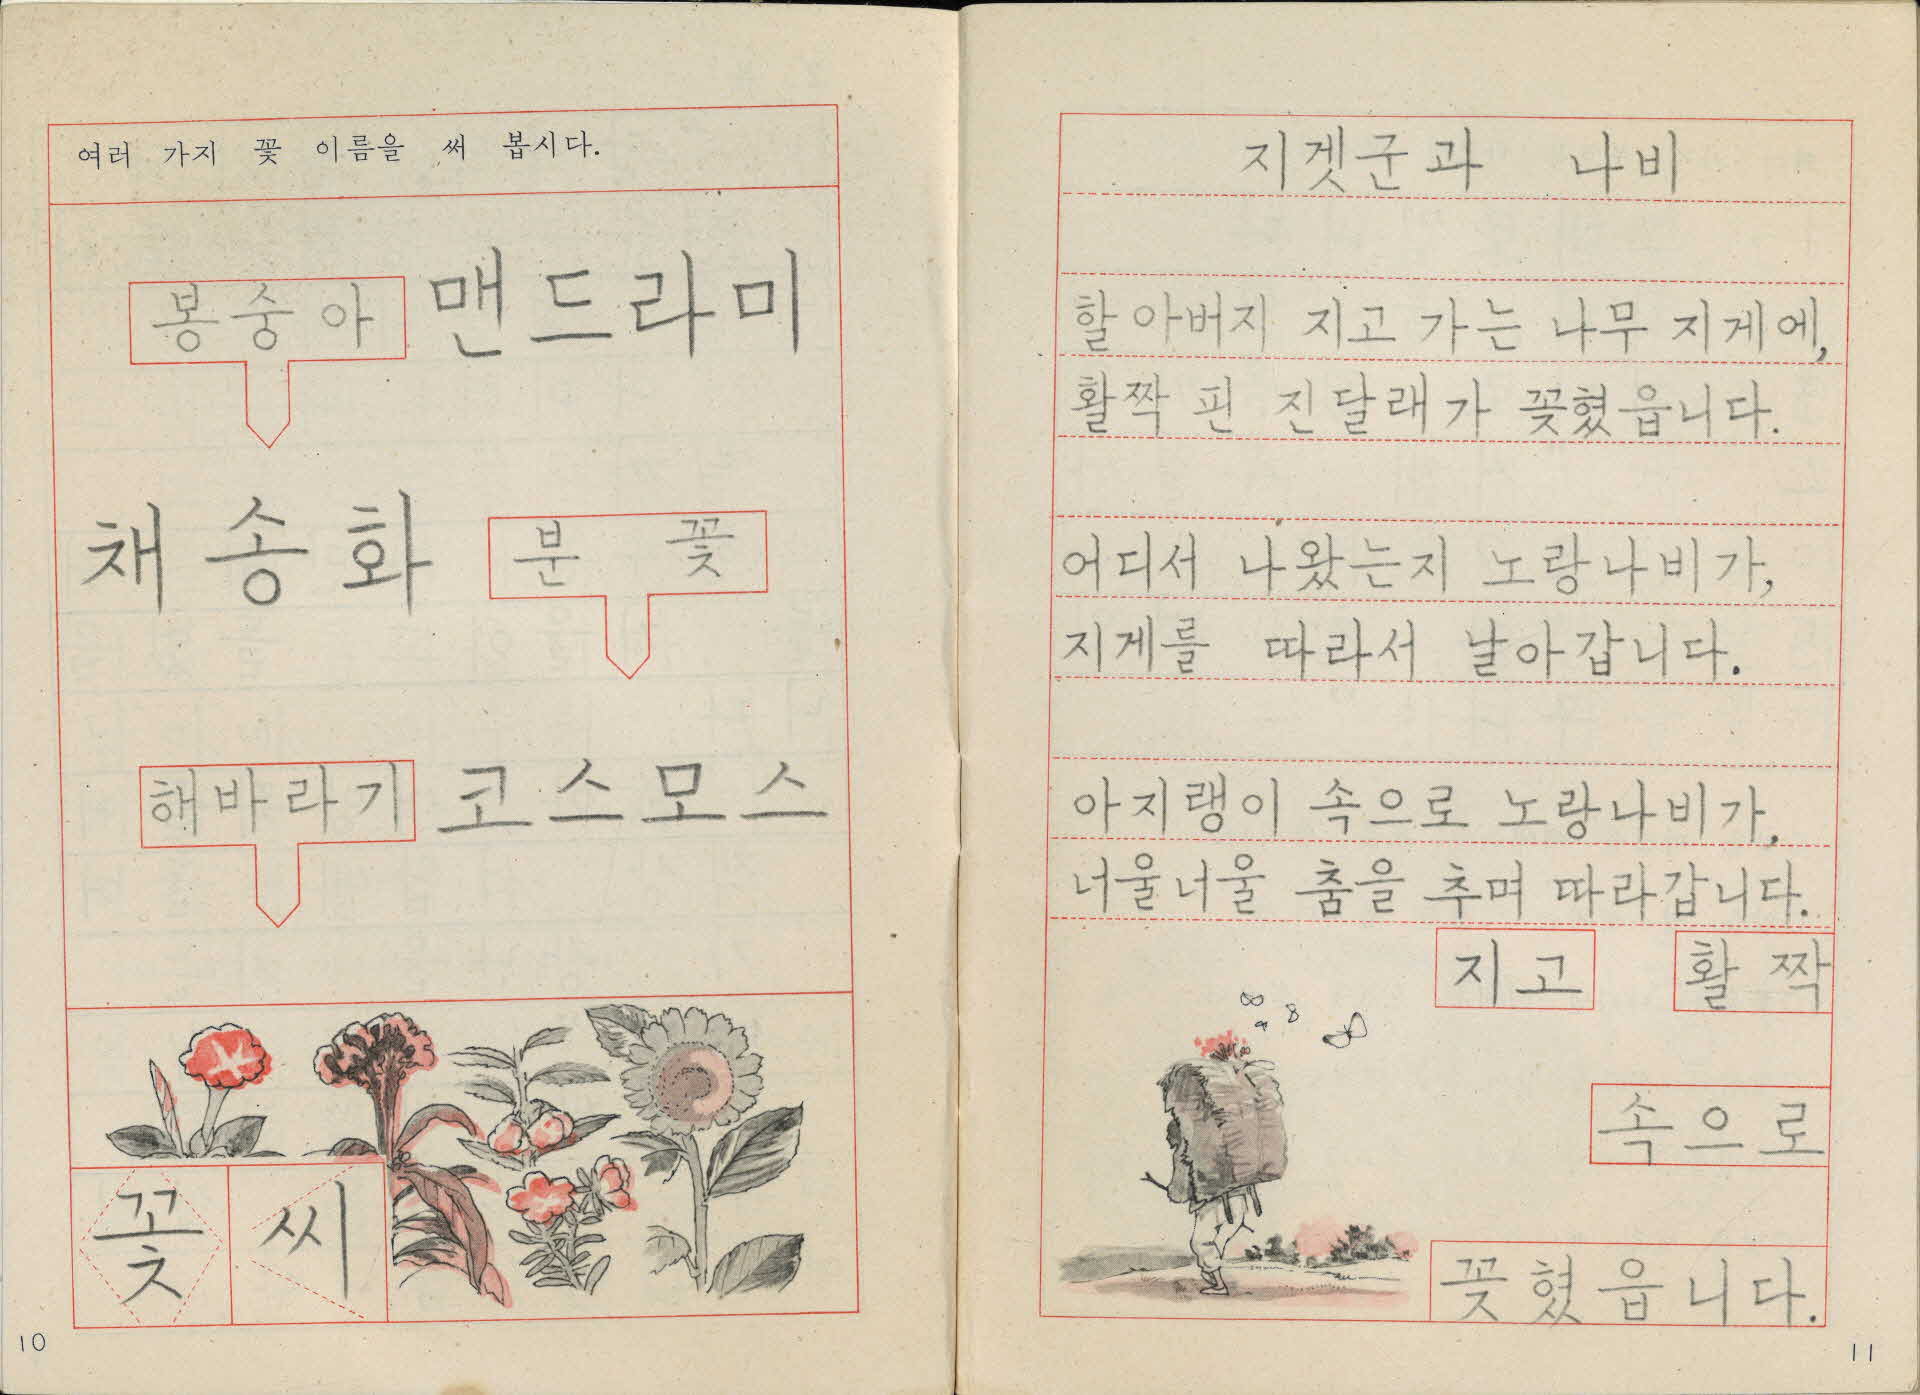 여러 가지 꽃 이름을 써 봅시다.
봉숭아 맨드라미
채송화 분꽃
해바라기 코스모스
꽃 씨
10
지겟군과 나비
할아버지 지고 가는 나무 지게에,
활짝 핀 진달래가 꽂혔읍니다.
어디서 나왔는지 노랑나비가,
지게를 따라서 날아갑니다.
아지랭이 속으로 노랑나비가,
너울너울 춤을 추며 따라갑니다.
지고 활짝
속으로
꽂혔읍니다.
11